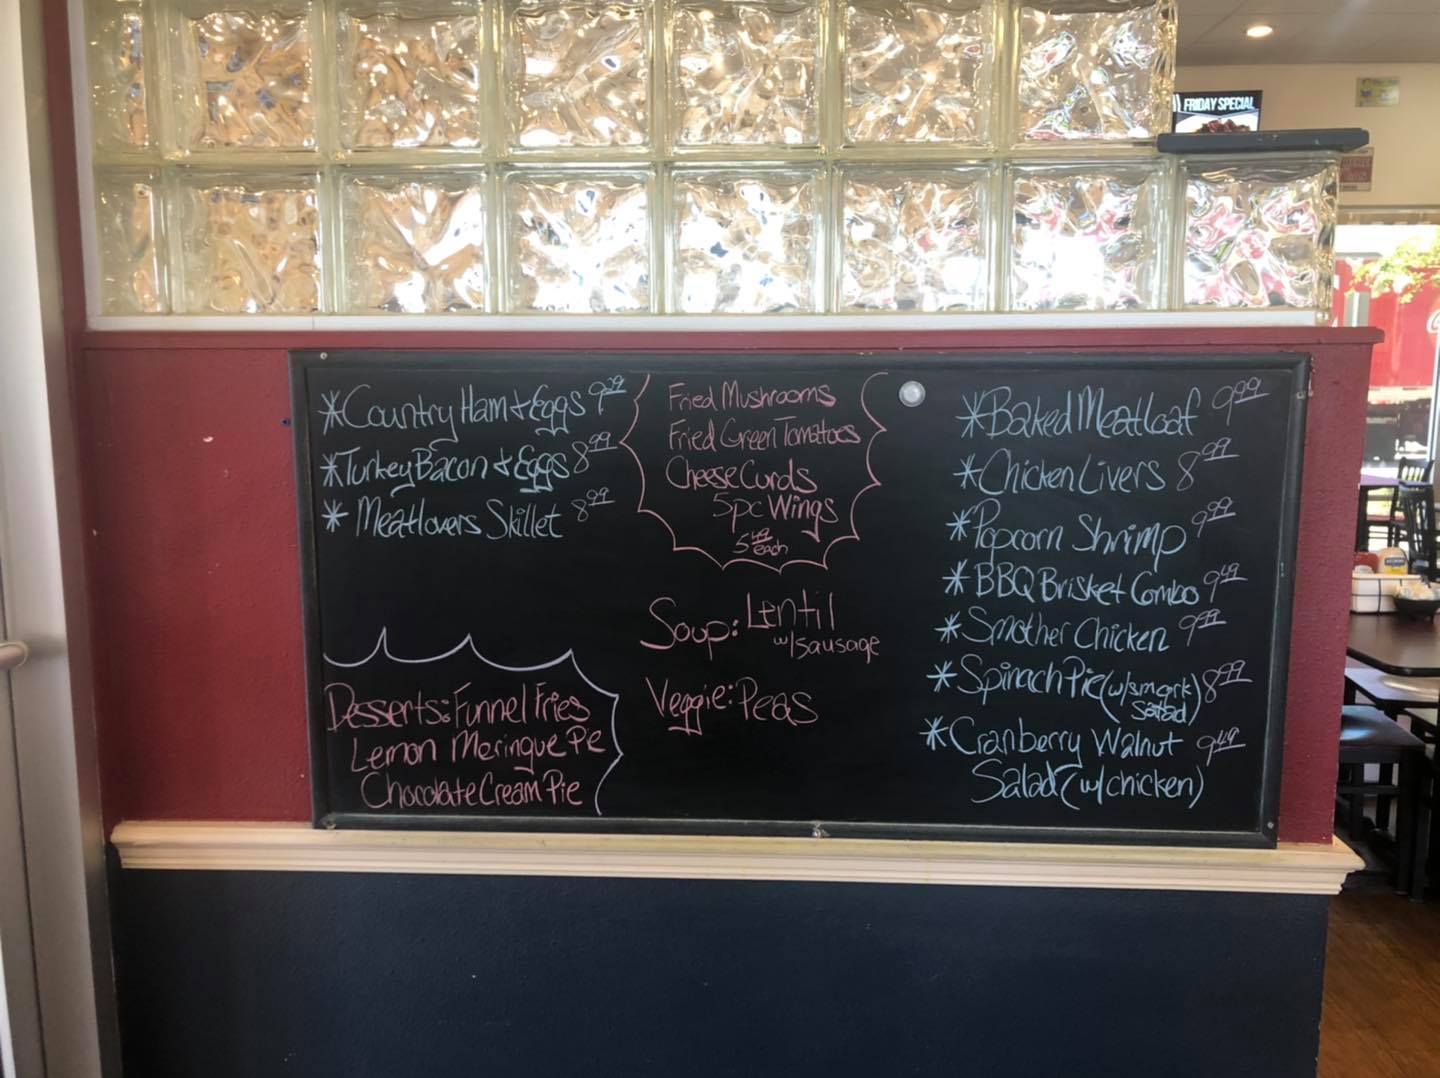 FRIDAY SPECIAL
*Country Ham & Eggs 9.29
*Turkey Bacon & Eggs 8.99
*Meatlovers Skillet 8.99
Desserts: Funnel Fries
Lemon Meringue Pe
Chocolate Cream Pie
Fried Mushrooms
Fried Green Tomatoes
Cheese Curds
5pc Wings
5.49 each
Soup: Lentil
w/sausage
Veggie: Peas
*Baked Meatloaf 9.99
*Chicken Livers 8.99
*Popcorn Shrimp 9.99
*BBQ Brisket Combo 9.49
*Smother Chicken 9.99
*Spinach Pie (w/smark 8.99
salad)
*Cranberry Walnut 9.49
Salad (w/chicken)